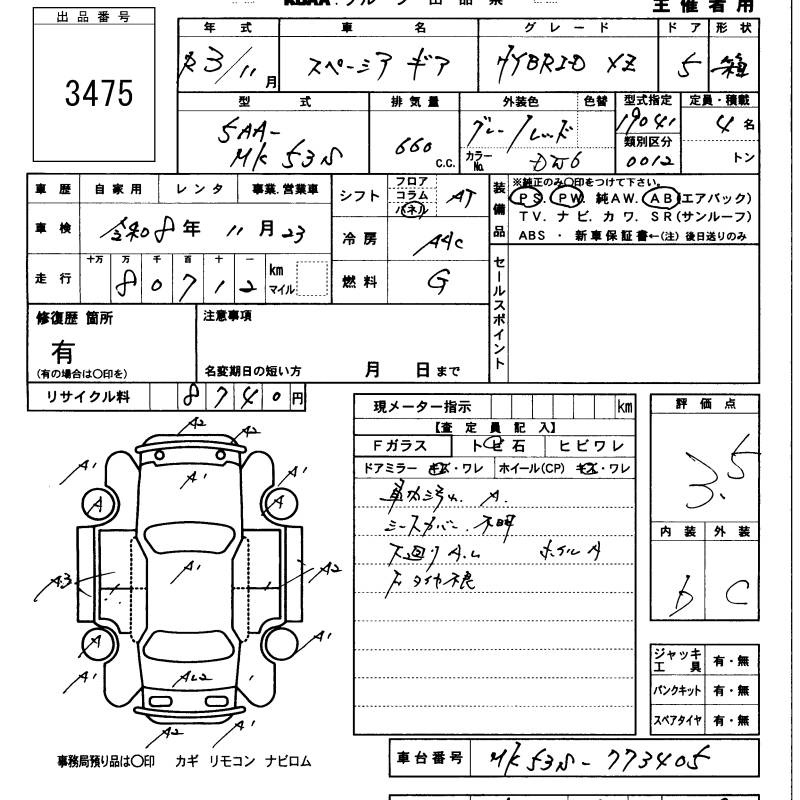 主催者用
出品番号
3475
年式 車名 グレード ドア 形状
R3/11月 スペーシア ギア HYBRID XZ 5 箱
型式 排気量 外装色 色替 型式指定 定員・積載
5AA-MK53S 660 C.C. グレー/レッド 19041 4名
カラーNo. DW6 類別区分 0012 トン
車歴 自家用 レンタ 事業.営業車 シフト フロア コラム パネル AT
装備品 ※純正のみ〇印をつけて下さい。
PS. PW. 純AW. AB(エアバック)
TV. ナビ. カワ. SR(サンルーフ)
ABS ・ 新車保証書←(注) 後日送りのみ
車検 令和8年 11月23 冷房 AAC
走行 十万 万 千 百 十 一 km マイル
80712
燃料 G
セールスポイント
修復歴 箇所 注意事項
有
(有の場合は〇印を) 名変期日の短い方 月 日まで
リサイクル料 8740円
現メーター指示 km
【査定員記入】
Fガラス トビ石 ヒビワレ
ドアミラー キズ・ワレ ホイール(CP) キズ・ワレ
車内汚れ A.
シートカバー 不明
下廻りA.L ホイルA
タイヤ不良
評価点
3.5
内装 外装
b C
ジャッキ工具 有・無
パンクキット 有・無
スペアタイヤ 有・無
A2 A2
A1 A1 A1
A A
A3 A1 A2
A A1
A1 AL2 A1
A2 A1
事務局預り品は〇印 カギ リモコン ナビロム
車台番号 MK53S-773405